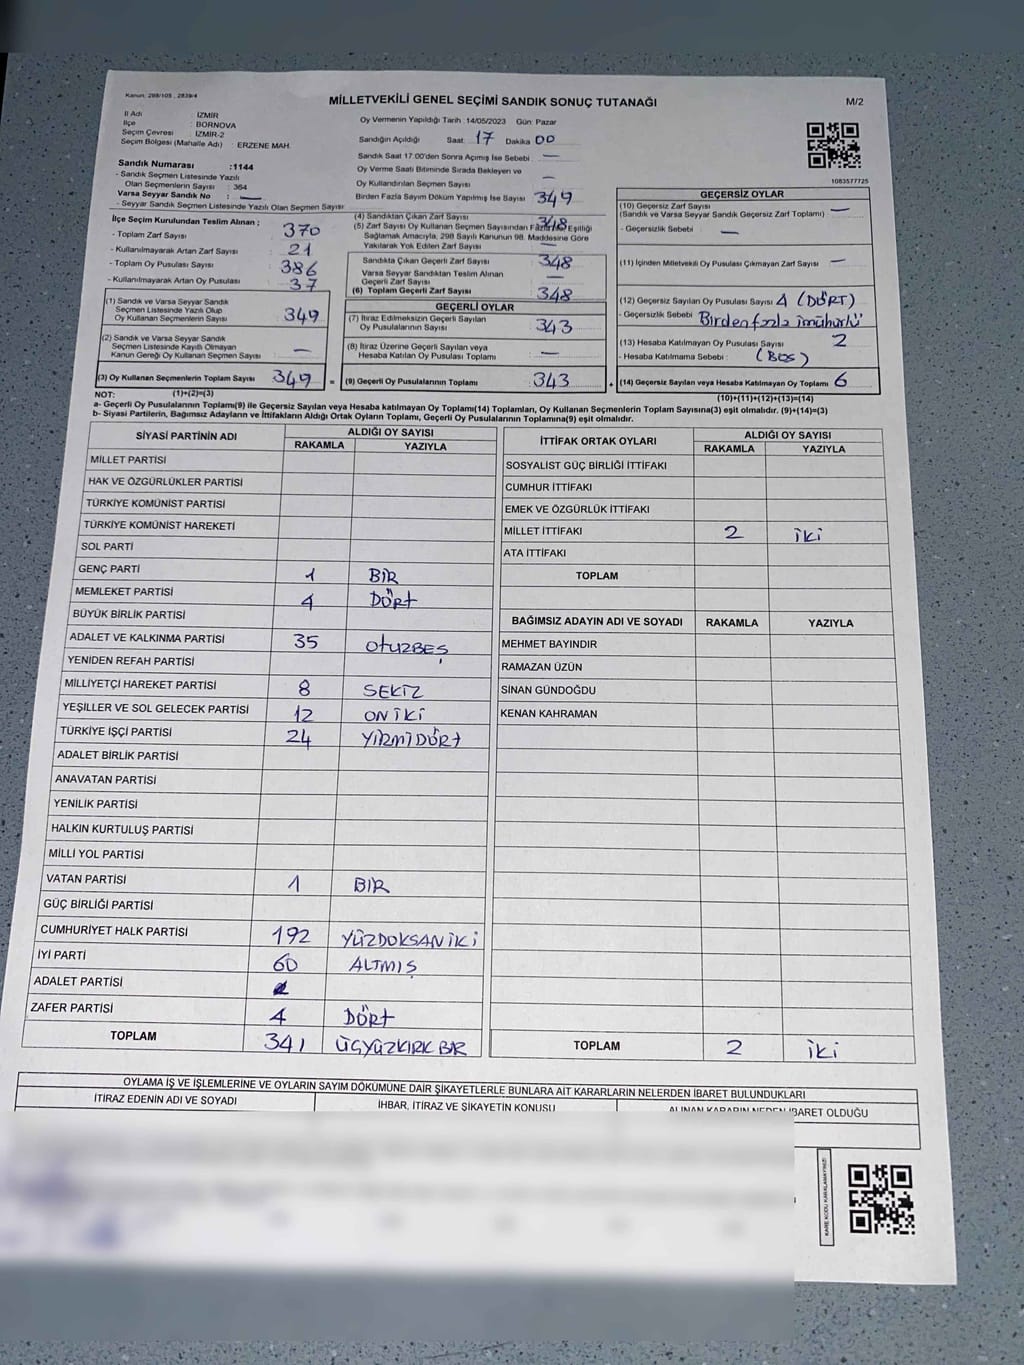 Kanun: 298/105 , 2839/4
MİLLETVEKİLİ GENEL SEÇİMİ SANDIK SONUÇ TUTANAĞI
M/2
İl Adı : İZMİR
İlçe : BORNOVA
Seçim Çevresi : İZMİR-2
Seçim Bölgesi (Mahalle Adı) : ERZENE MAH.
Oy Vermenin Yapıldığı Tarih :14/05/2023 Gün: Pazar
Sandığın Açıldığı Saat: 17 Dakika 00
Sandık Saat 17:00'den Sonra Açımış İse Sebebi : —
Oy Verme Saati Bitiminde Sırada Bekleyen ve
Oy Kullandırılan Seçmen Sayısı —
Birden Fazla Sayım Döküm Yapılmış İse Sayısı 349
1083577725
Sandık Numarası :1144
- Sandık Seçmen Listesinde Yazılı
Olan Seçmenlerin Sayısı : 364
Varsa Seyyar Sandık No : —
- Seyyar Sandık Seçmen Listesinde Yazılı Olan Seçmen Sayısı:
İlçe Seçim Kurulundan Teslim Alınan ;
- Toplam Zarf Sayısı 370
- Kullanılmayarak Artan Zarf Sayısı 21
- Toplam Oy Pusulası Sayısı 386
- Kullanılmayarak Artan Oy Pusulası 37
(1) Sandık ve Varsa Seyyar Sandık
Seçmen Listesinde Yazılı Olup
Oy Kullanan Seçmenlerin Sayısı 349
(2) Sandık ve Varsa Seyyar Sandık
Seçmen Listesinde Kayıtlı Olmayan
Kanun Gereği Oy Kullanan Seçmen Sayısı —
(3) Oy Kullanan Seçmenlerin Toplam Sayısı 349 =
(1)+(2)=(3)
(4) Sandıktan Çıkan Zarf Sayısı 348
(5) Zarf Sayısı Oy Kullanan Seçmen Sayısından Fazla İse Eşitliği
Sağlamak Amacıyla, 298 Sayılı Kanunun 98. Maddesine Göre
Yakılarak Yok Edilen Zarf Sayısı —
Sandıkta Çıkan Geçerli Zarf Sayısı 348
Varsa Seyyar Sandıktan Teslim Alınan
Geçerli Zarf Sayısı —
(6) Toplam Geçerli Zarf Sayısı 348
GEÇERLİ OYLAR
(7) İtiraz Edilmeksizin Geçerli Sayılan
Oy Pusulalarının Sayısı 343
(8) İtiraz Üzerine Geçerli Sayılan veya
Hesaba Katılan Oy Pusulası Toplamı —
(9) Geçerli Oy Pusulalarının Toplamı 343 +
GEÇERSİZ OYLAR
(10) Geçersiz Zarf Sayısı
(Sandık ve Varsa Seyyar Sandık Geçersiz Zarf Toplamı) —
- Geçersizlik Sebebi : —
(11) İçinden Milletvekili Oy Pusulası Çıkmayan Zarf Sayısı —
(12) Geçersiz Sayılan Oy Pusulası Sayısı 4 (DÖRT)
- Geçersizlik Sebebi : Birden fazla mühürlü
(13) Hesaba Katılmayan Oy Pusulası Sayısı 2
- Hesaba Katılmama Sebebi : (BOŞ)
(14) Geçersiz Sayılan veya Hesaba Katılmayan Oy Toplamı 6
(10)+(11)+(12)+(13)=(14)
NOT:
a- Geçerli Oy Pusulalarının Toplamı(9) ile Geçersiz Sayılan veya Hesaba katılmayan Oy Toplamı(14) Toplamları, Oy Kullanan Seçmenlerin Toplam Sayısına(3) eşit olmalıdır. (9)+(14)=(3)
b- Siyasi Partilerin, Bağımsız Adayların ve İttifakların Aldığı Ortak Oyların Toplamı, Geçerli Oy Pusulalarının Toplamına(9) eşit olmalıdır.
SİYASİ PARTİNİN ADI
ALDIĞI OY SAYISI
RAKAMLA YAZIYLA
MİLLET PARTİSİ
HAK VE ÖZGÜRLÜKLER PARTİSİ
TÜRKİYE KOMÜNİST PARTİSİ
TÜRKİYE KOMÜNİST HAREKETİ
SOL PARTİ
GENÇ PARTİ 1 BİR
MEMLEKET PARTİSİ 4 DÖRT
BÜYÜK BİRLİK PARTİSİ
ADALET VE KALKINMA PARTİSİ 35 OTUZBEŞ
YENİDEN REFAH PARTİSİ
MİLLİYETÇİ HAREKET PARTİSİ 8 SEKİZ
YEŞİLLER VE SOL GELECEK PARTİSİ 12 ON İKİ
TÜRKİYE İŞÇİ PARTİSİ 24 YİRMİDÖRT
ADALET BİRLİK PARTİSİ
ANAVATAN PARTİSİ
YENİLİK PARTİSİ
HALKIN KURTULUŞ PARTİSİ
MİLLİ YOL PARTİSİ
VATAN PARTİSİ 1 BİR
GÜÇ BİRLİĞİ PARTİSİ
CUMHURİYET HALK PARTİSİ 192 YÜZDOKSAN İKİ
İYİ PARTİ 60 ALTMIŞ
ADALET PARTİSİ
ZAFER PARTİSİ 4 DÖRT
TOPLAM 341 ÜÇYÜZKIRK BİR
İTTİFAK ORTAK OYLARI
ALDIĞI OY SAYISI
RAKAMLA YAZIYLA
SOSYALİST GÜÇ BİRLİĞİ İTTİFAKI
CUMHUR İTTİFAKI
EMEK VE ÖZGÜRLÜK İTTİFAKI
MİLLET İTTİFAKI 2 İKİ
ATA İTTİFAKI
TOPLAM
BAĞIMSIZ ADAYIN ADI VE SOYADI RAKAMLA YAZIYLA
MEHMET BAYINDIR
RAMAZAN ÜZÜN
SİNAN GÜNDOĞDU
KENAN KAHRAMAN
TOPLAM 2 İKİ
OYLAMA İŞ VE İŞLEMLERİNE VE OYLARIN SAYIM DÖKÜMÜNE DAİR ŞİKAYETLERLE BUNLARA AİT KARARLARIN NELERDEN İBARET BULUNDUKLARI
İTİRAZ EDENİN ADI VE SOYADI
İHBAR, İTİRAZ VE ŞİKAYETİN KONUSU
ALINAN KARARIN NEDEN İBARET OLDUĞU